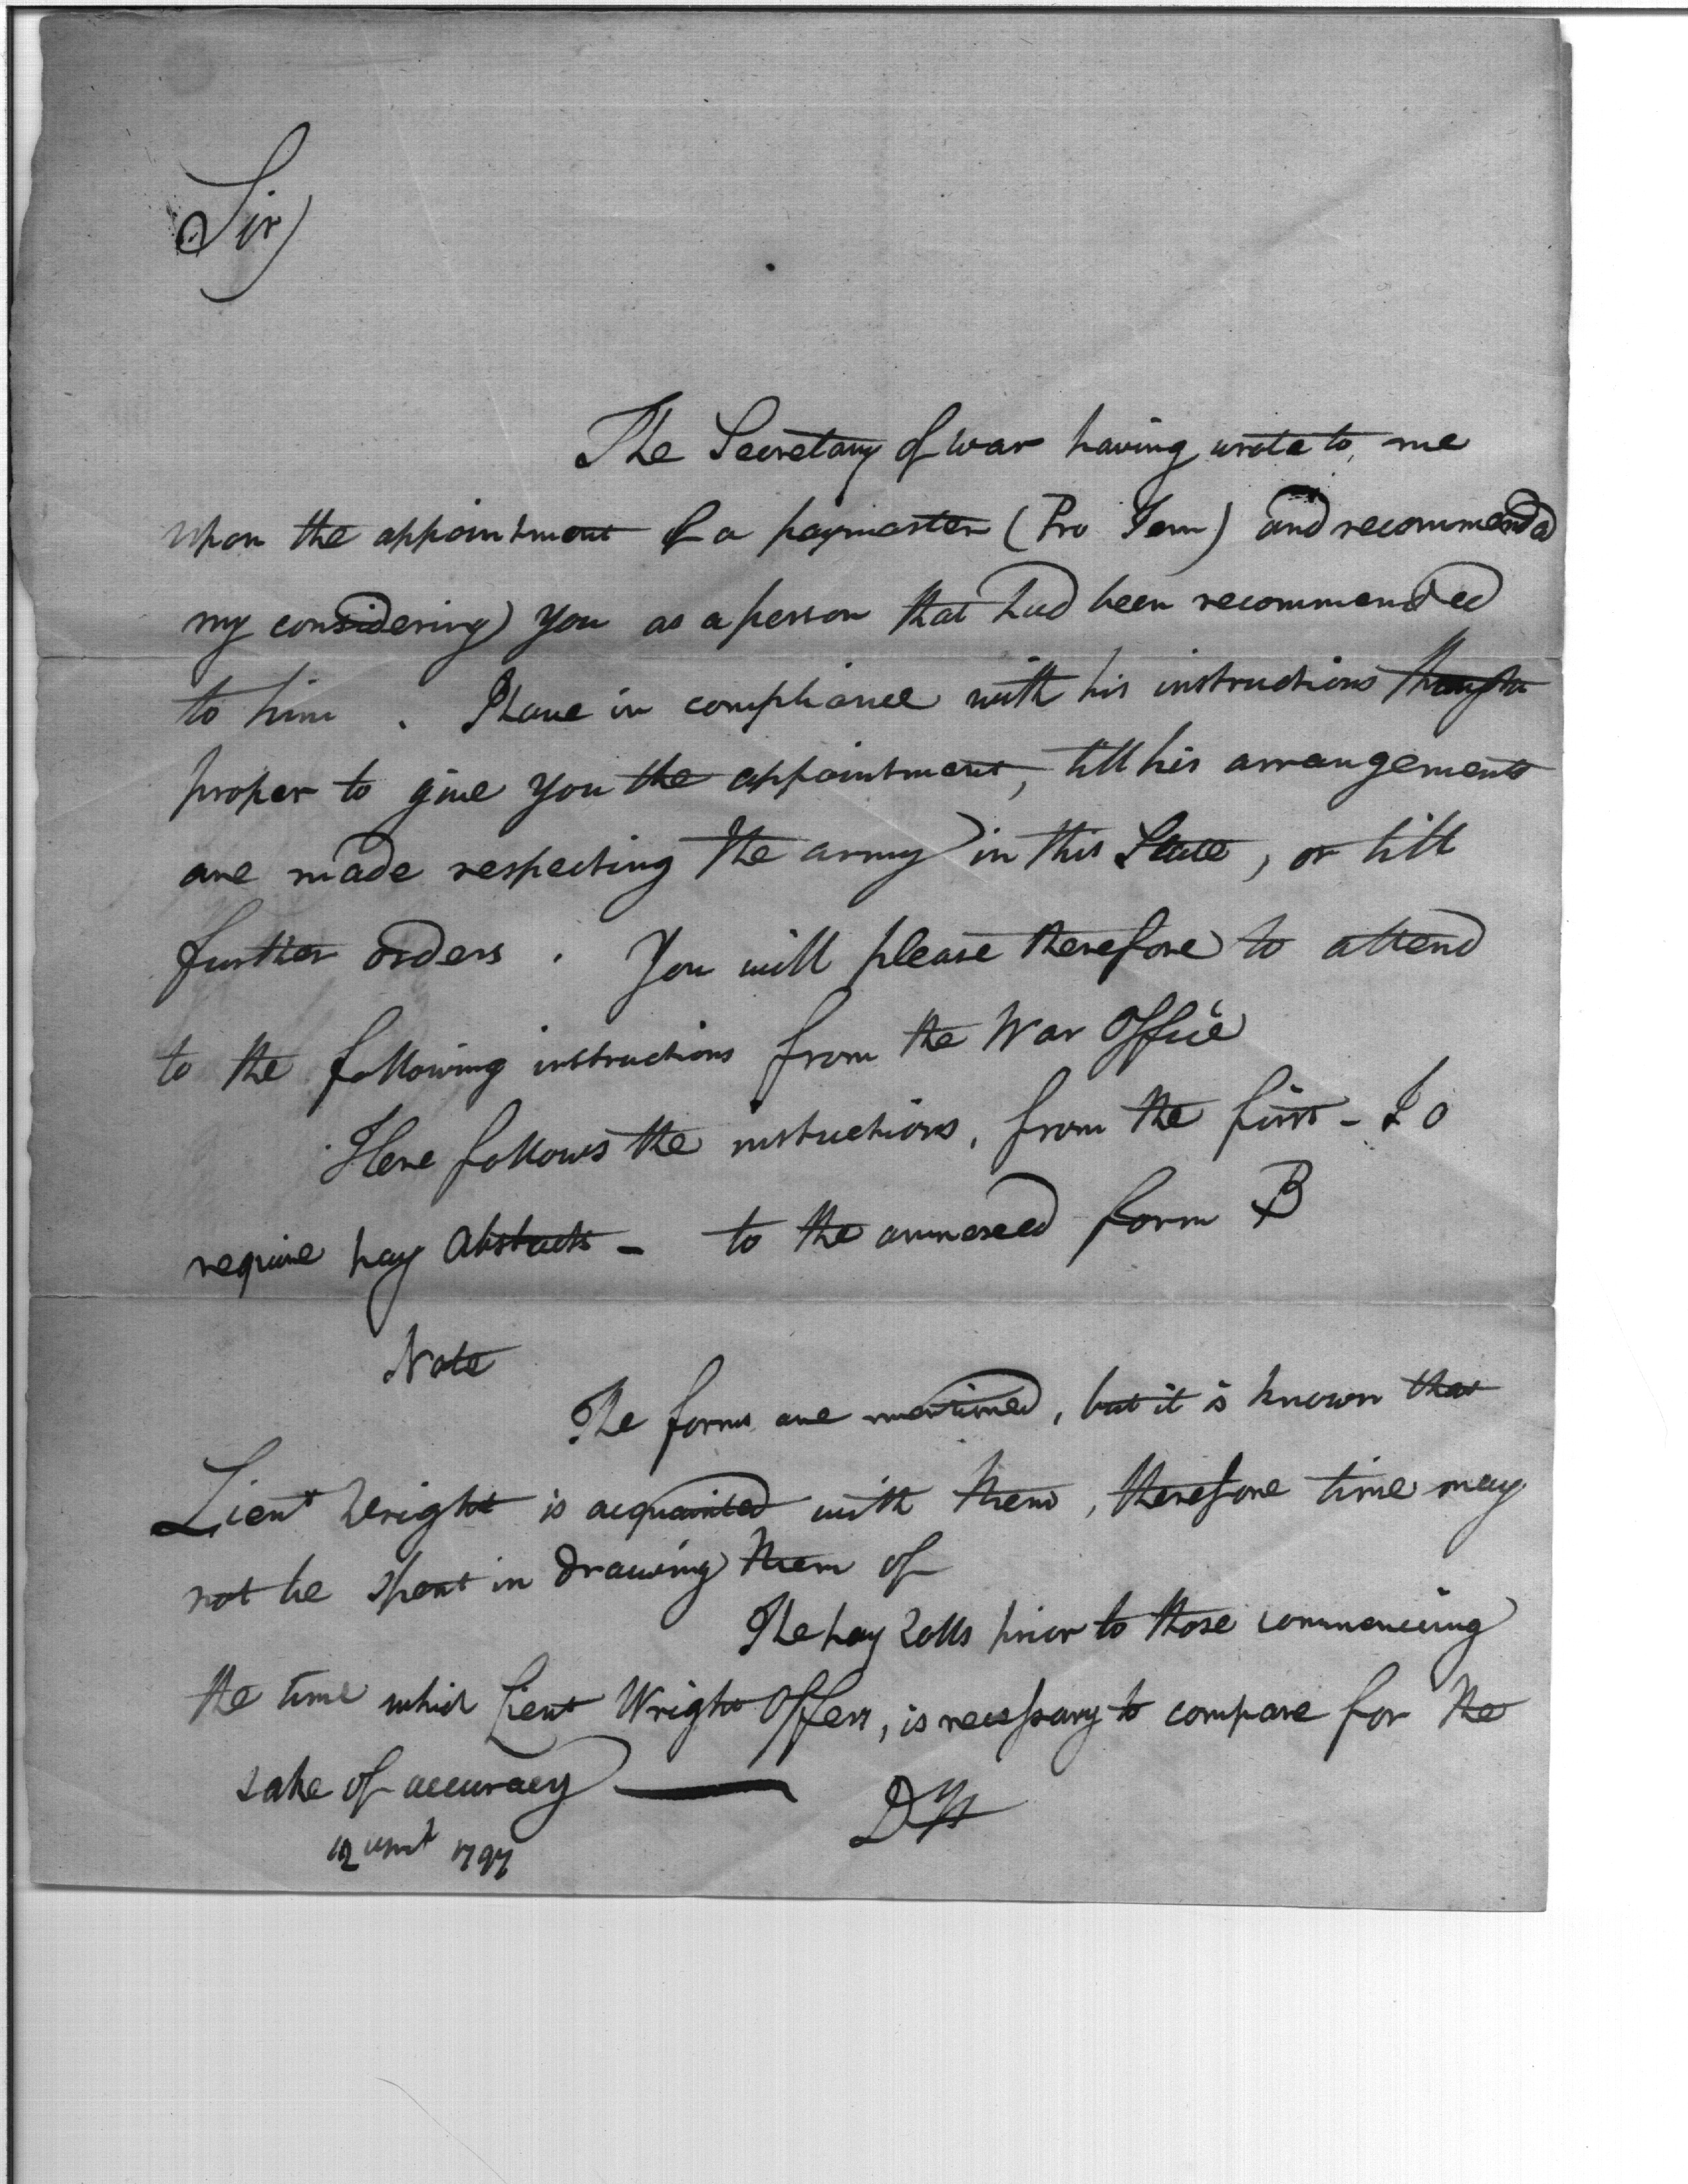 Sir
The Secretary of war having wrote to me
upon the appointment of a paymaster (Pro Tem) and recommended
my considering you as a person that had been recommended
to him . I have in compliance with his instructions thought
proper to give you the appointment, till his arrangements
are made respecting the army in this State, or till
further orders . You will please therefore to attend
to the following instructions from the War Office
Here follows the instructions, from the first - To
require pay Abstracts - to the annexed form B
Note
The forms are mentioned, but it is known that
Lieut Wright is acquainted with them, therefore time may
not be spent in drawing them of
The pay Rolls prior to those commencing
the time which Lieut Wright Offers, is necessary to compare for the
sake of accuracy
12 1797